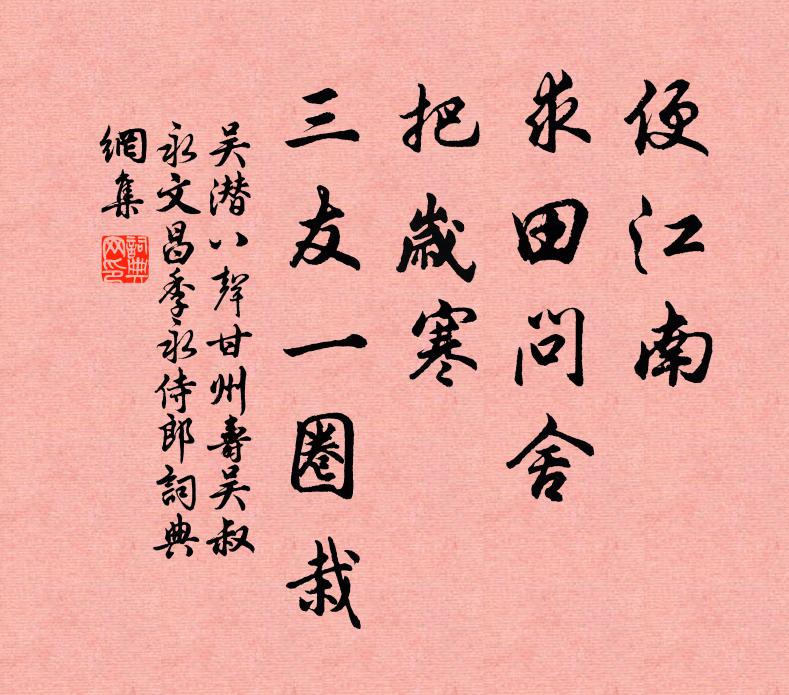 便江南
求田問舍
把歲寒
三友一圈栽
吴潜八聲甘州壽吴叔
永文昌季永侍郎詞典
網集
詞典網印